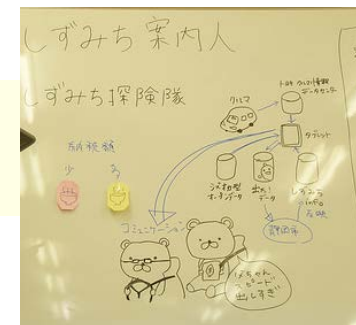 しずみち案内人
しずみち探険隊
クルマ
トヨタ クルマ情報
データセンタ
タブレット
少 多
オープンデータ
データ
しずみち
info
反映
静岡市
コミュニケーション
スピード
出しすぎ